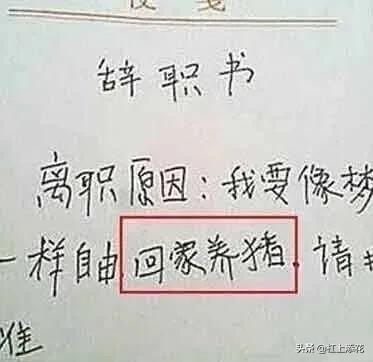 辞职书
离职原因：我要像梦
一样自由.回家养猪.请
准
头条 @杠上添花